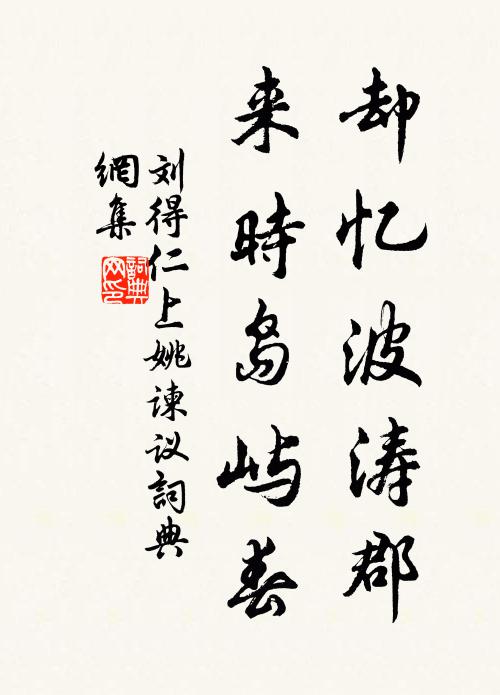 却忆波涛郡
来時岛屿春
刘得仁上姚谏议詞典
網集
詞典网印